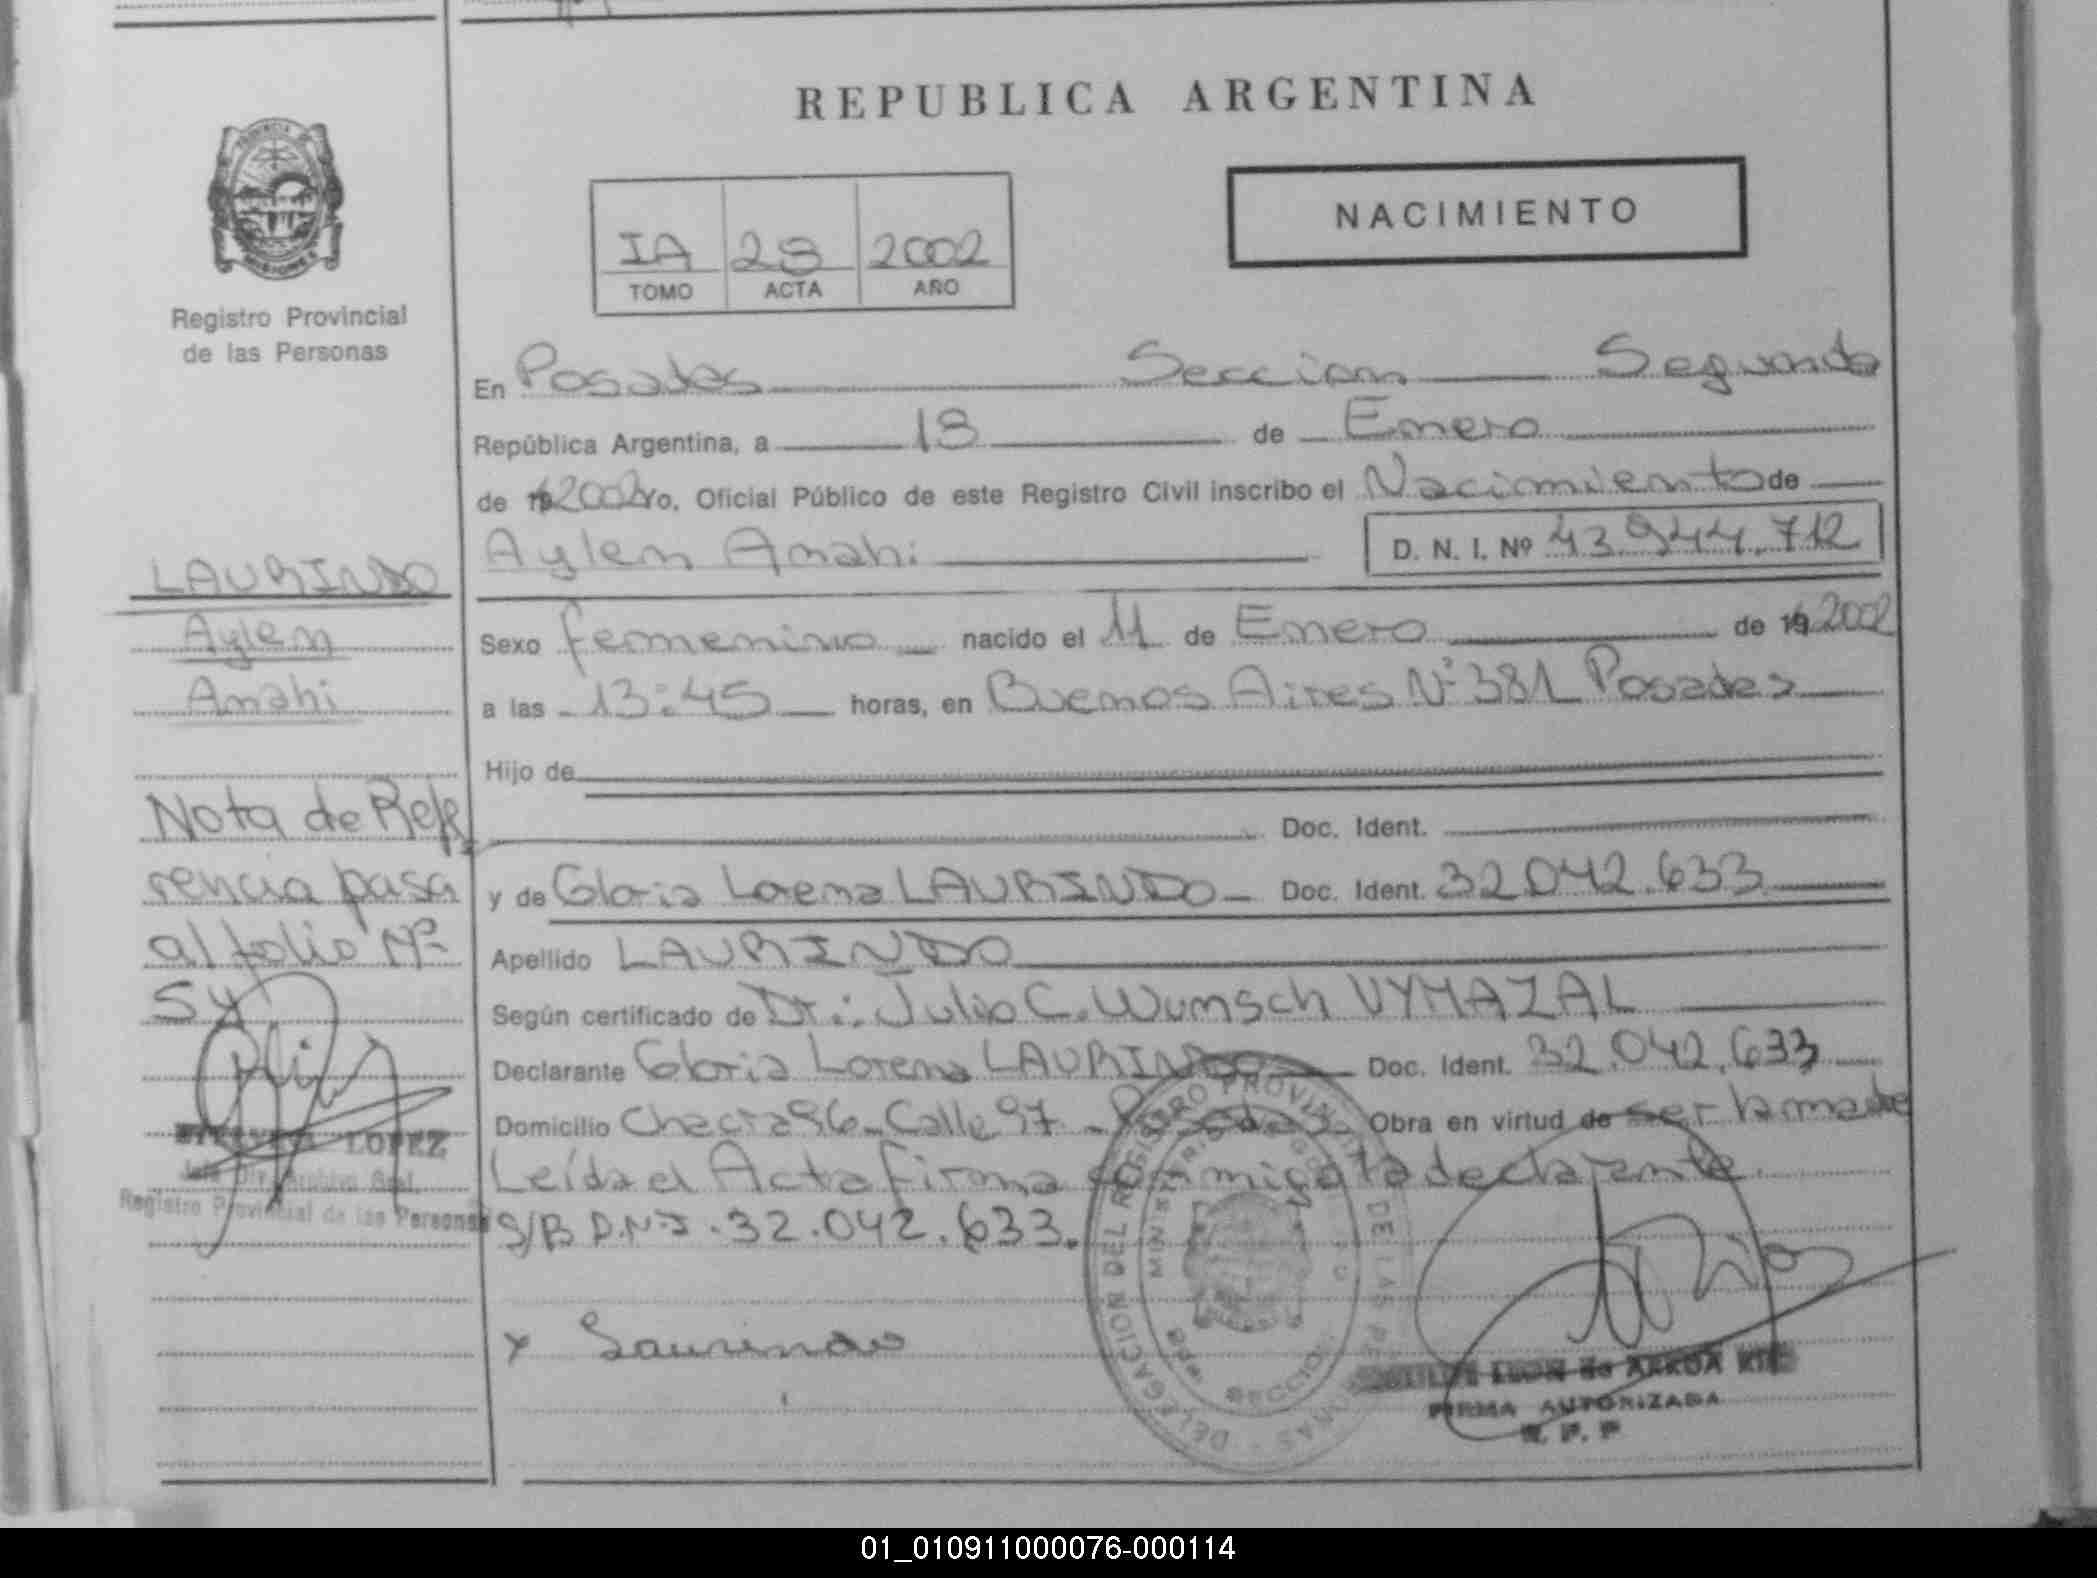 REPUBLICA ARGENTINA
NACIMIENTO
IA 28 2002
TOMO ACTA AÑO
PROVINCIA DE
MISIONES
Registro Provincial
de las Personas
En Posadas Seccion Segunda
República Argentina, a 18 de Enero
de 19 2002 Yo, Oficial Público de este Registro Civil inscribo el Nacimiento de
Aylen Anahi D. N. I. Nº 43.944.712
LAURINDO
Aylen
Anahi
Sexo femenino nacido el 11 de Enero de 19 2002
a las 13:45 horas, en Buenos Aires Nº 381 Posadas
Hijo de
Doc. Ident.
y de Gloria Lorena LAURINDO Doc. Ident. 32.042.633
Apellido LAURINDO
Según certificado de Dr.: Julio C. Wunsch VYMAZAL
Declarante Gloria Lorena LAURINDO Doc. Ident. 32.042.633
Domicilio Chacra 96 - Calle 97 - Posadas Obra en virtud de ser la madre
Leída el Acta firma conmigo la declarante
S/B D.N.I. 32.042.633.
Nota de Refe
rencia pasa
al folio Nº
LOPEZ
Registro Provincial de las Personas
x Laurindo
DELEGACION DEL REGISTRO PROVINCIAL DE LAS PERSONAS
SECCION
FIRMA AUTORIZADA
R. P. P
01_010911000076-000114